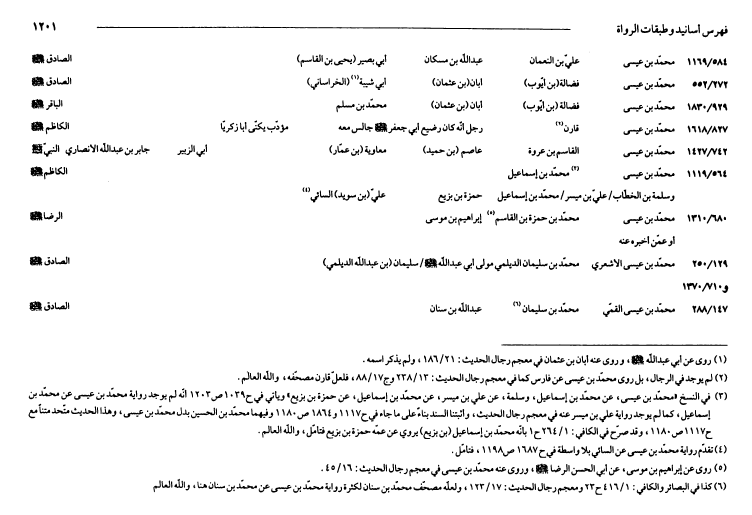 فهرس أسانيد وطبقات الرواة ١٢٠١
١١٦٩/٥٨٤ محمّد بن عيسى عليّ بن النعمان عبدالله بن مسكان أبي بصير (يحيى بن القاسم) الصادق ﷺ
٥٥٢/٢٧٢ محمّد بن عيسى فضالة (بن أيّوب) ابان (بن عثمان) أبي شيبة(١) (الخراساني) الصادق ﷺ
١٨٣٠/٩٢٩ محمّد بن عيسى فضالة (بن أيّوب) ابان (بن عثمان) محمّد بن مسلم الباقر ﷺ
١٦١٨/٨٢٧ محمّد بن عيسى قارن(٢) رجل انّه كان رضيع أبي جعفر ﷺ جالس معه مؤدّب يكنّى أبا زكريّا الكاظم ﷺ
١٤٢٧/٧٤٢ محمّد بن عيسى القاسم بن عروة عاصم (بن حميد) معاوية (بن عمّار) أبي الزبير جابر بن عبدالله الانصاري النبيّ ﷺ
١١١٩/٥٦٤ محمّد بن عيسى (٣) محمّد بن إسماعيل الكاظم ﷺ
وسلمة بن الخطّاب/ عليّ بن ميسر/ محمّد بن إسماعيل حمزة بن بزيع عليّ (بن سويد) السائي(٤)
١٣١٠/٦٨٠ محمّد بن عيسى محمّد بن حمزة بن القاسم(٥) إبراهيم بن موسى الرضا ﷺ
أو عمّن أخبره عنه
٢٥٠/١٢٩ محمّد بن عيسى الاشعري محمّد بن سليمان الديلمي مولى أبي عبدالله ﷺ/ سليمان (بن عبدالله الديلمي) الصادق ﷺ
و١٣٧٠/٧١٠
٢٨٨/١٤٧ محمّد بن عيسى القمّي محمّد بن سليمان(٦) عبدالله بن سنان الصادق ﷺ
(١) روى عن أبي عبدالله ﷺ، وروى عنه ابان بن عثمان في معجم رجال الحديث: ١٨٦/٢١، ولم يذكر اسمه.
(٢) لم يوجد في الرجال، بل روى محمّد بن عيسى عن فارس كما في معجم رجال الحديث: ٢٣٨/١٣ وج٨٨/١٧، فلعلّ قارن مصحّفه، والله العالم.
(٣) في النسخ «محمّد بن عيسى، عن محمّد بن إسماعيل، وسلمة، عن علي بن ميسر، عن محمّد بن إسماعيل، عن حمزة بن بزيع» ويأتي في ح١٠٣٩ ص١٢٠٣ انّه لم يوجد رواية محمّد بن عيسى عن محمّد بن
إسماعيل، كما لم يوجد رواية علي بن ميسر عنه في معجم رجال الحديث، وأثبتنا السند بناءً على ما جاء في ح١١١٧ و١٨٦٤ ص١١٨٠ وفيهما محمّد بن الحسين بدل محمّد بن عيسى، وهذا الحديث متّحد متناً مع
ح١١١٧ ص١١٨٠، وقد صرّح في الكافي: ٢٦٤/١ ح١ بأنّه محمّد بن إسماعيل (بن بزيع) يروي عن عمّه حمزة بن بزيع فتأمّل، والله العالم.
(٤) تقدّم رواية محمّد بن عيسى عن السائي بلا واسطة في ح١٦٨٧ ص١١٩٨، فتأمّل.
(٥) روى عن إبراهيم بن موسى، عن أبي الحسن الرضا ﷺ، وروى عنه محمّد بن عيسى في معجم رجال الحديث: ٤٥/١٦.
(٦) كذا في البصائر والكافي: ٤١٦/١ ح٢٣ ومعجم رجال الحديث: ١٢٣/١٧، ولعلّه مصحّف محمّد بن سنان لكثرة رواية محمّد بن عيسى عن محمّد بن سنان هنا، والله العالم